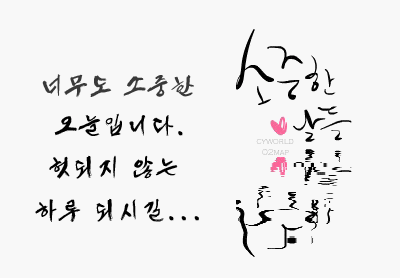 너무도 소중한
오늘입니다.
헛되지 않는
하루 되시길...
소중한
날들
CYWORLD